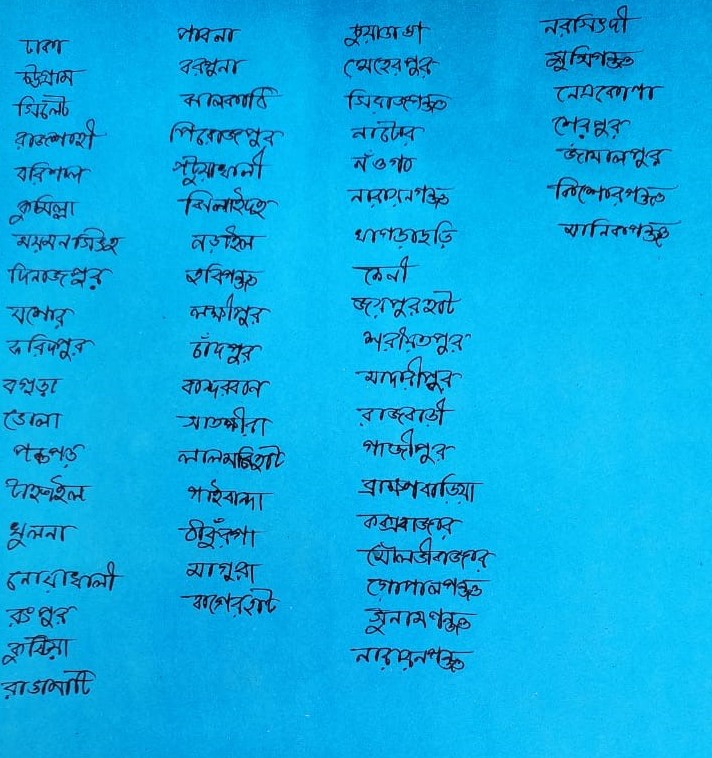 ঢাকা
চট্টগ্রাম
সিলেট
রাজশাহী
বরিশাল
কুমিল্লা
ময়মনসিংহ
দিনাজপুর
যশোর
ফরিদপুর
বগুড়া
ভোলা
পঞ্চগড়
টাঙ্গাইল
খুলনা
নোয়াখালী
রংপুর
কুষ্টিয়া
রাঙামাটি
পাবনা
বরগুনা
ঝালকাঠি
পিরোজপুর
পটুয়াখালী
ঝিনাইদহ
নড়াইল
হবিগঞ্জ
লক্ষীপুর
চাঁদপুর
বান্দরবান
সাতক্ষীরা
লালমনিরহাট
গাইবান্দা
ঠাকুঁরগা
মাগুরা
বাগেরহাট
চুয়াডাঙ্গা
মেহেরপুর
সিরাজগঞ্জ
নাটোর
নঁওগা
নারায়নগঞ্জ
খাগড়াছড়ি
ফেনী
জয়পুরহাট
শরীয়তপুর
মাদারীপুর
রাজবাড়ী
গাজীপুর
ব্রাহ্মণবাড়িয়া
কক্সবাজার
মৌলভীবাজার
গোপালগঞ্জ
সুনামগঞ্জ
নারায়নগঞ্জ
নরসিংদী
মুন্সিগঞ্জ
নেত্রকোণা
শেরপুর
জামালপুর
কিশোরগঞ্জ
মানিকগঞ্জ